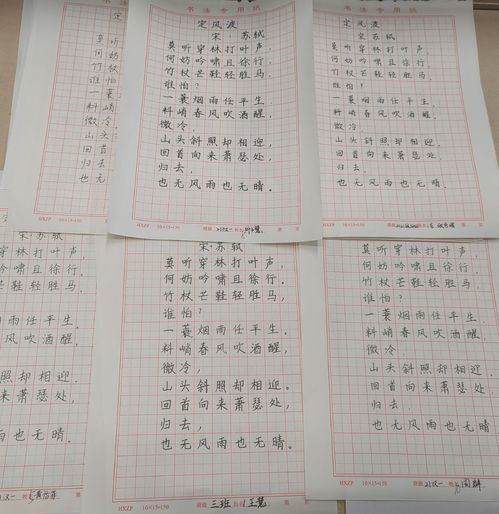 定风
宋
莫听
何妨
竹杖
谁怕
一蓑
料峭
微冷
山头
回首
归去
也无
HXZP 16×15=150
书法专用纸
定风波
宋 苏轼
莫听穿林打叶声，
何妨吟啸且徐行，
竹杖芒鞋轻胜马，
谁怕？
一蓑烟雨任平生，
料峭春风吹酒醒，
微冷，
山头斜照却相迎，
回首向来萧瑟处，
归去，
也无风雨也无晴。
HXZP 16×15=150
班级 姓名 第 页
书法专用纸
定风波
宋 苏轼
莫听穿林打叶声，
何妨吟啸且徐行，
竹杖芒鞋轻胜马，
谁怕！
一蓑烟雨任平生，
料峭春风吹酒醒，
微冷，
山头斜照却相迎，
回首向来萧瑟处，
归去，
也无风雨也无晴。
HXZP 16×15=150
页
苏轼
雨任平生，
风吹酒醒，
照却相迎，
来萧瑟处，
雨也无晴。
汉一
宋·苏轼
莫听穿林打叶声，
何妨吟啸且徐行，
竹杖芒鞋轻胜马，
谁怕？
一蓑烟雨任平生，
料峭春风吹酒醒，
微冷，
山头斜照却相迎。
回首向来萧瑟处，
归去，
也无风雨也无晴。
HXZP 16×15=150
班级 三班 姓名 王慧 第 页
宋·苏轼
莫听穿林打叶声，
何妨吟啸且徐行，
竹杖芒鞋轻胜马，
谁怕？
一蓑烟雨任平生，
料峭春风吹酒醒，
微冷，
山头斜照却相迎，
回首向来萧瑟处，
归去，
也无风雨也无晴。
HXZP 16×15=150
班级 21汉一 姓名